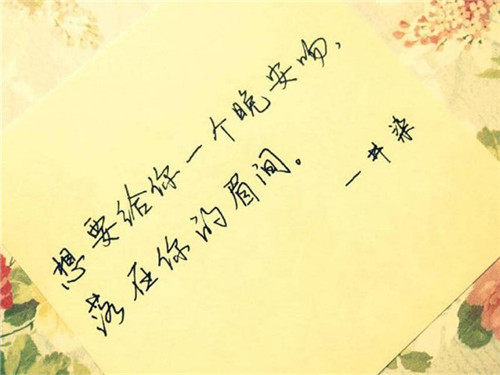 想要给你一个晚安吻,
落在你的眉间。
一井染